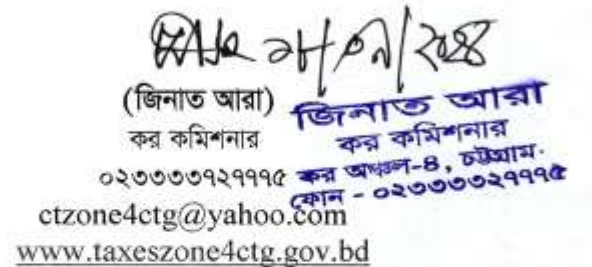 (জিনাত আরা)
কর কমিশনার
০২৩৩৩৩৭২৭৭৭৫
ctzone4ctg@yahoo.com
www.taxeszone4ctg.gov.bd
জিনাত আরা
কর কমিশনার
কর অঞ্চল-৪, চট্টগ্রাম.
ফোন - ০২৩৩৩৩২৭৭৭৫